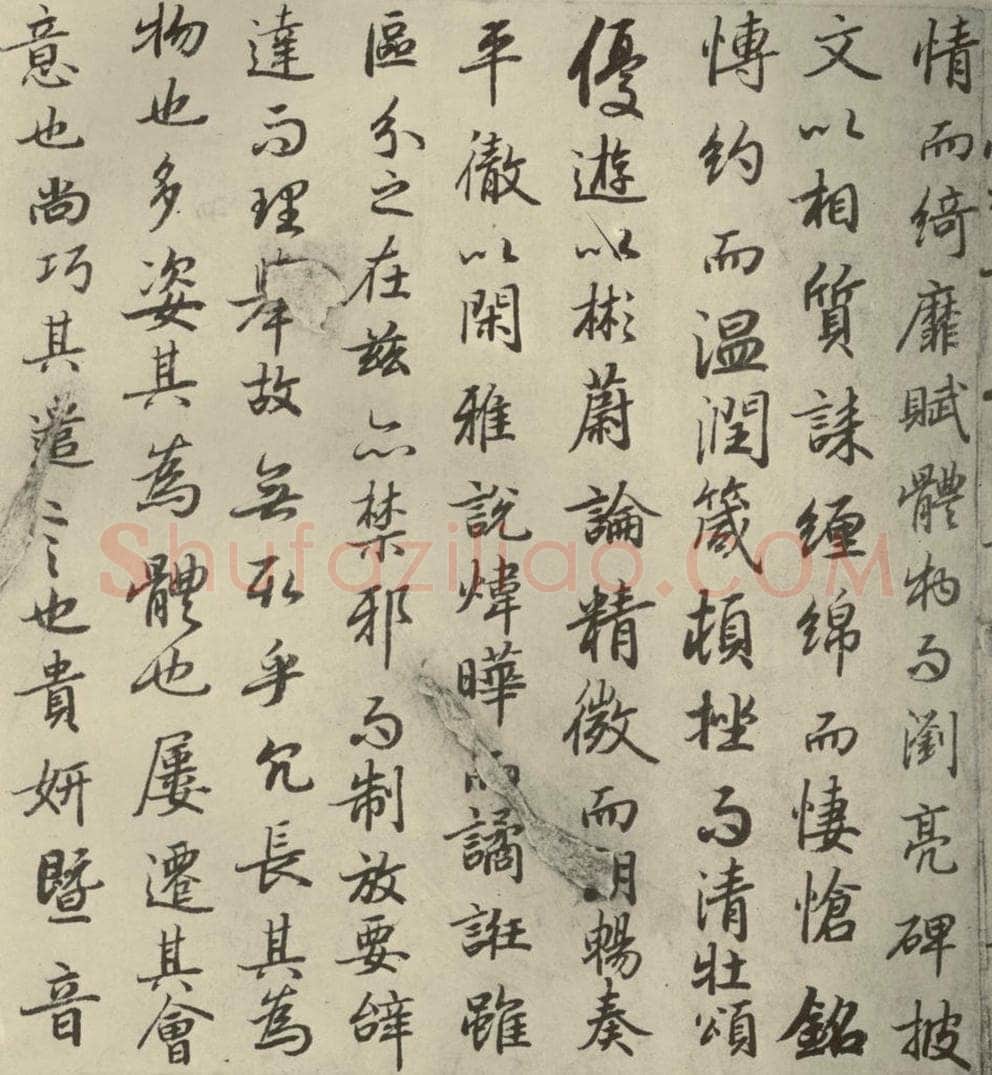 情而綺靡賦體物而瀏亮碑披
文以相質誄纏綿而悽愴銘
愽約而温潤箴頓挫而清壯頌
優遊以彬蔚論精微而朗暢奏
平徹以閑雅說煒曄而譎誑雖
區分之在茲亦禁邪而制放要辭
達而理舉故無取乎冗長其為
物也多姿其為體也屢遷其會
意也尚巧其遣言也貴妍暨音
Shufaziliao.COM